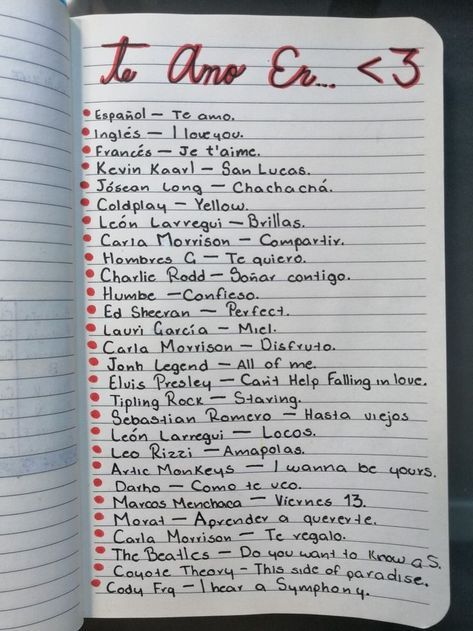 Te Amo En... <3
Español — Te amo.
Inglés — I love you.
Francés — Je t'aime.
Kevin Kaarl — San Lucas.
Jósean Long — Chachachá.
Coldplay — Yellow.
León Larregui — Brillas.
Carla Morrison — Compartir.
Hombres G — Te quiero.
Charlie Rodd — Soñar contigo.
Humbe — Confieso.
Ed Sheeran — Perfect.
Lauri García — Miel.
Carla Morrison — Disfruto.
Jonh Legend — All of me.
Elvis Presley — Can't Help Falling in love.
Tipling Rock — Staving.
Sebastian Romero — Hasta viejos
León Larregui — Locos.
Leo Rizzi — Amapolas.
Artic Monkeys — I wanna be yours.
Darho — Como te veo.
Marcos Menchaca — Viernes 13.
Morat — Aprender a quererte.
Carla Morrison — Te regalo.
The Beatles — Do you want to know a S.
Coyote Theory - This side of paradise.
Cody Frq — I hear a Symphony.